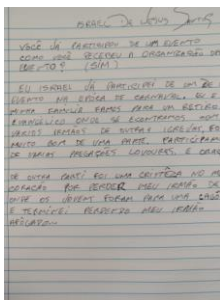 ISRAEL DE JESUS SANTOS
VOCÊ JÁ PARTICIPOU DE UM EVENTO
COMO VOCÊ RECEBEU A ORGANIZAÇÃO DO
EVENTO? (SIM)
EU ISRAEL JÁ PARTICIPEI DE UM DE
EVENTO NA EPOCA DE CARNAVAL EU E
MINHA FAMILIA FAMOS PARA UM RETIRO
ONDE SE ECONTRAMOS COM
VARIOS IRMÃOS DE OUTRAS IGREJAS, FOI
MUITO BOM DE UMA PARTE, PARTICIPAMOS
DE VARIAS PREGAÇÕES LOUVORES E
DE OUTRA PARTE FOI UMA TRISTEZA NO MEU
CORAÇÃO POR PERDER MEU IRMÃO
ONDE OS JOVENS FORAM PARA UMA LAGOA
E TERMINEI PERDENDO MEU IRMÃO
AFOGADO